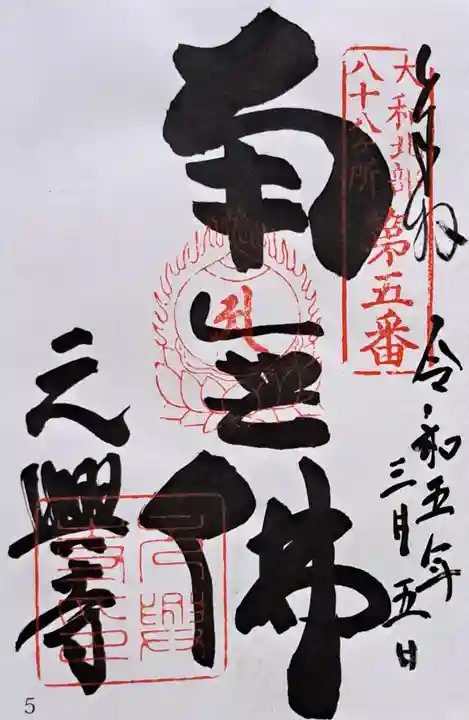 大和北部
八十八ヶ所
第五番
奉拝
令和五年
三月五日
南無佛
元興寺
5